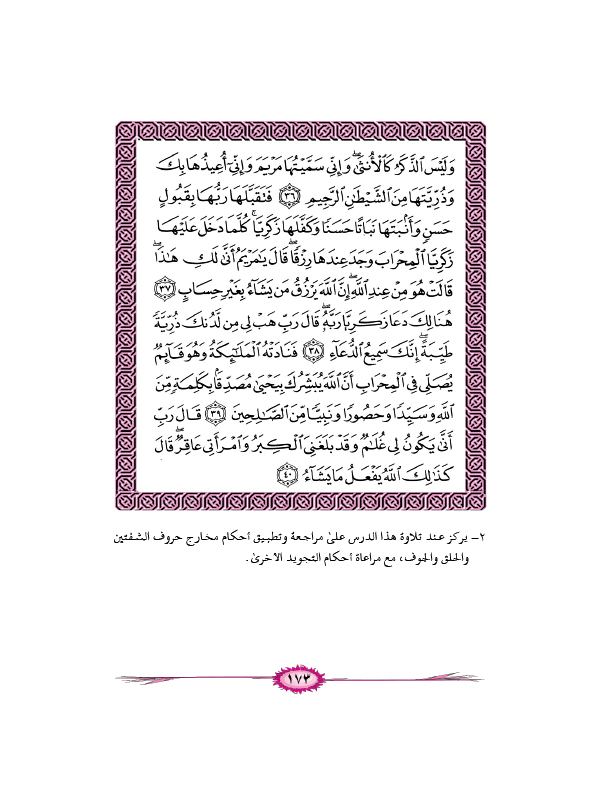 وَلَيْسَ ٱلذَّكَرُ كَٱلْأُنثَىٰۖ وَإِنِّى سَمَّيْتُهَا مَرْيَمَ وَإِنِّىٓ أُعِيذُهَا بِكَ
وَذُرِّيَّتَهَا مِنَ ٱلشَّيْطَٰنِ ٱلرَّجِيمِ ٣٦ فَتَقَبَّلَهَا رَبُّهَا بِقَبُولٍ
حَسَنٍ وَأَنۢبَتَهَا نَبَاتًا حَسَنًا وَكَفَّلَهَا زَكَرِيَّاۖ كُلَّمَا دَخَلَ عَلَيْهَا
زَكَرِيَّا ٱلْمِحْرَابَ وَجَدَ عِندَهَا رِزْقًاۖ قَالَ يَٰمَرْيَمُ أَنَّىٰ لَكِ هَٰذَاۖ
قَالَتْ هُوَ مِنْ عِندِ ٱللَّهِۖ إِنَّ ٱللَّهَ يَرْزُقُ مَن يَشَآءُ بِغَيْرِ حِسَابٍ ٣٧
هُنَالِكَ دَعَا زَكَرِيَّا رَبَّهُۥۖ قَالَ رَبِّ هَبْ لِى مِن لَّدُنكَ ذُرِّيَّةً
طَيِّبَةًۖ إِنَّكَ سَمِيعُ ٱلدُّعَآءِ ٣٨ فَنَادَتْهُ ٱلْمَلَٰٓئِكَةُ وَهُوَ قَآئِمٌ
يُصَلِّى فِى ٱلْمِحْرَابِ أَنَّ ٱللَّهَ يُبَشِّرُكَ بِيَحْيَىٰ مُصَدِّقًۢا بِكَلِمَةٍ مِّنَ
ٱللَّهِ وَسَيِّدًا وَحَصُورًا وَنَبِيًّا مِّنَ ٱلصَّٰلِحِينَ ٣٩ قَالَ رَبِّ
أَنَّىٰ يَكُونُ لِى غُلَٰمٌ وَقَدْ بَلَغَنِىَ ٱلْكِبَرُ وَٱمْرَأَتِى عَاقِرٌۖ قَالَ
كَذَٰلِكَ ٱللَّهُ يَفْعَلُ مَا يَشَآءُ ٤٠
٢- يركز عند تلاوة هذا الدرس على مراجعة وتطبيق أحكام مخارج حروف الشفتين
والحلق والجوف، مع مراعاة أحكام التجويد الأخرى.
١٧٣